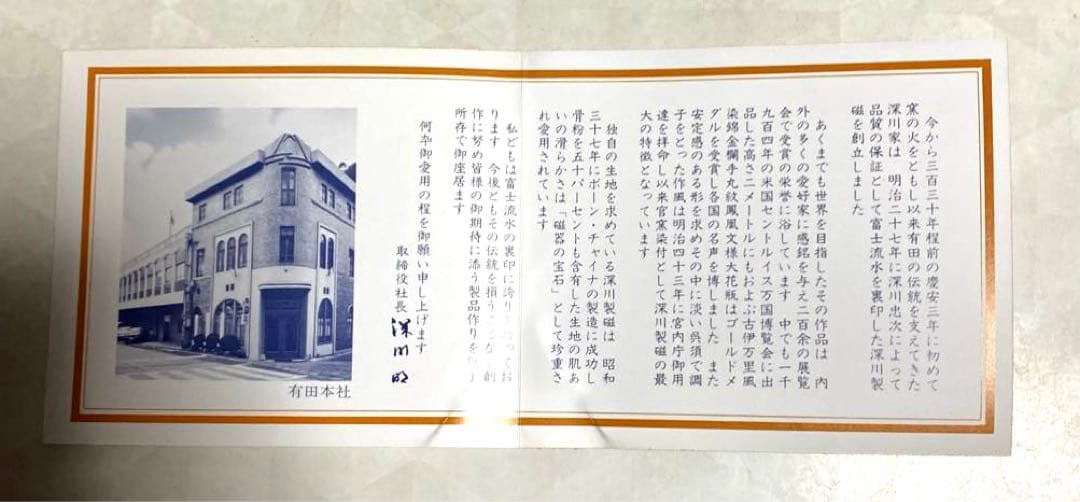 今から三百三十年程前の慶安三年に初めて
窯の火をともし以来有田の伝統を支えてきた
深川家は 明治二十七年に深川忠次によって
品質の保証として富士流水を裏印した深川製
磁を創立しました
あくまでも世界を目指したその作品は 内
外の多くの愛好家に感銘を与え二百余の展覧
会で受賞の栄誉に浴しています 中でも一千
九百四年の米国セントルイス万国博覧会に出
品した高さ二メートルにもおよぶ古伊万里風
染錦金襴手丸紋鳳凰文様大花瓶はゴールドメ
ダルを受賞し各国の名声を博しました また
安定感のある形を求めその中に淡い呉須で調
子をとった作風は明治四十三年に宮内庁御用
達を拝命し以来官窯染付として深川製磁の最
大の特徴となっています
独自の生地を求めている深川製磁は 昭和
三十七年にボーン・チャイナの製造に成功し
骨粉を五十パーセントも含有した生地の肌あ
いの滑らかさは「磁器の宝石」として珍重さ
れ愛用されています
私どもは富士流水の裏印に誇り ってお
ります 今後ともその伝統を損う 創
作に努め皆様の御期待に添う製品作りを
所存で御座居ます
何卒御愛用の程を御願い申し上げます
取締役社長 深川 明
有田本社